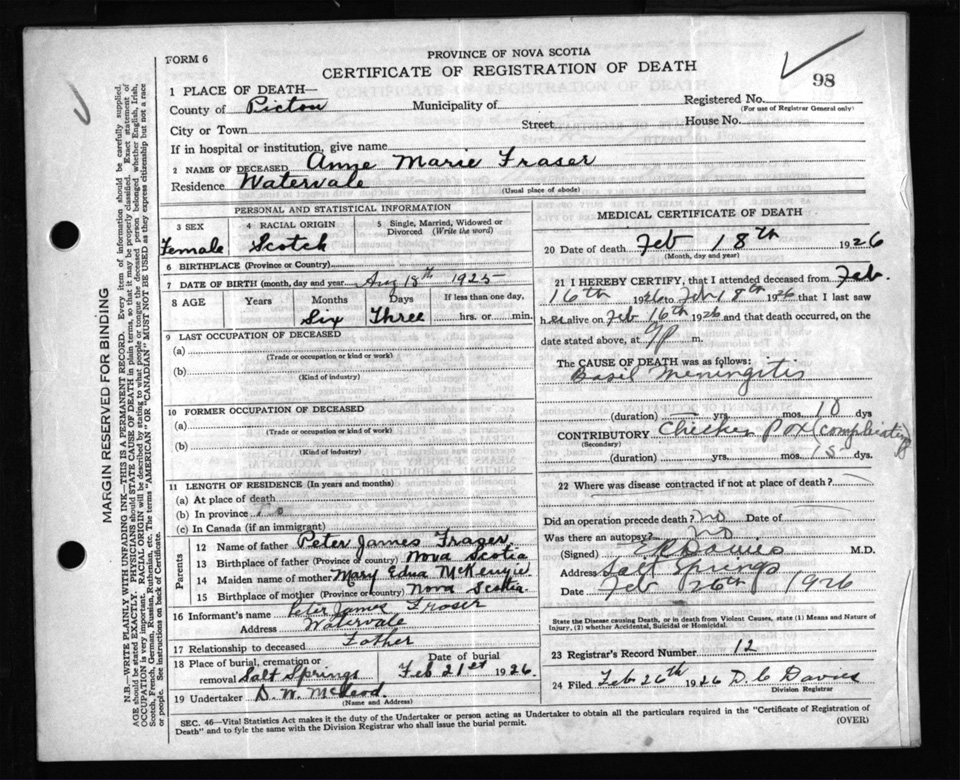 FORM 6
PROVINCE OF NOVA SCOTIA
CERTIFICATE OF REGISTRATION OF DEATH
98
1 PLACE OF DEATH—
County of Pictou Municipality of
Registered No.
(For use of Registrar General only)
City or Town Street House No.
If in hospital or institution, give name
2 NAME OF DECEASED Anne Marie Fraser
Residence Watervale
(Usual place of abode)
PERSONAL AND STATISTICAL INFORMATION
3 SEX 4 RACIAL ORIGIN 5 Single, Married, Widowed or Divorced (Write the word)
Female Scotch
6 BIRTHPLACE (Province or Country)
7 DATE OF BIRTH (month, day and year) Aug 18th 1925
8 AGE Years Months Days If less than one day,
Six Three hrs. or min.
9 LAST OCCUPATION OF DECEASED
(a)
(Trade or occupation or kind or work)
(b)
(Kind of industry)
10 FORMER OCCUPATION OF DECEASED
(a)
(Trade or occupation or kind or work)
(b)
(Kind of industry)
11 LENGTH OF RESIDENCE (In years and months)
(a) At place of death
(b) In province
(c) In Canada (if an immigrant)
Parents
12 Name of father Peter James Frazer
13 Birthplace of father (Province or country) Nova Scotia
14 Maiden name of mother Mary Edna McKenzie
15 Birthplace of mother (Province or country) Nova Scotia.
16 Informant's name Peter James Fraser
Address Watervale
17 Relationship to deceased Father
18 Place of burial, cremation or removal Salt Springs
Date of burial
Feb 21st 1926.
19 Undertaker D. W. McLeod.
(Name and Address)
MEDICAL CERTIFICATE OF DEATH
20 Date of death Feb 18th 1926
(Month, day and year)
21 I HEREBY CERTIFY, that I attended deceased from Feb.
16th 1926 to Feb 18th 1926 that I last saw
her alive on Feb 16th 1926 and that death occurred, on the
date stated above, at m.
The CAUSE OF DEATH was as follows:
Basel Meningitis
(duration) yrs. mos. 10 dys
CONTRIBUTORY Chicken Pox (complicating
(Secondary)
(duration) yrs. mos. 15 dys.
22 Where was disease contracted if not at place of death?
Did an operation precede death? No Date of
Was there an autopsy? No
(Signed) Davies M.D.
Address Salt Springs
Date Feb 26th 1926
State the Disease causing Death, or in death from Violent Causes, state (1) Means and Nature of Injury, (2) whether Accidental, Suicidal or Homicidal.
23 Registrar's Record Number 12
24 Filed Feb 26th 1926 D. C Davies
Division Registrar
SEC. 46—Vital Statistics Act makes it the duty of the Undertaker or person acting as Undertaker to obtain all the particulars required in the "Certificate of Registration of
Death" and to fyle the same with the Division Registrar who shall issue the burial permit.
(OVER)
MARGIN RESERVED FOR BINDING
N.B.—WRITE PLAINLY WITH UNFADING INK—THIS IS A PERMANENT RECORD. Every item of information should be carefully supplied.
AGE should be stated EXACTLY. PHYSICIANS should STATE CAUSE OF DEATH in plain terms, so that it may be properly classified. Exact statement of
OCCUPATION is very important. RACIAL ORIGIN will be described by stating to what people or tongue the deceased person belonged whether English, Irish,
Scotch, French, German, Russian, Ruthenian, etc. The terms "AMERICAN" or "CANADIAN" MUST NOT BE USED as they express citizenship but not a race
or people. See instructions on back of Certificate.